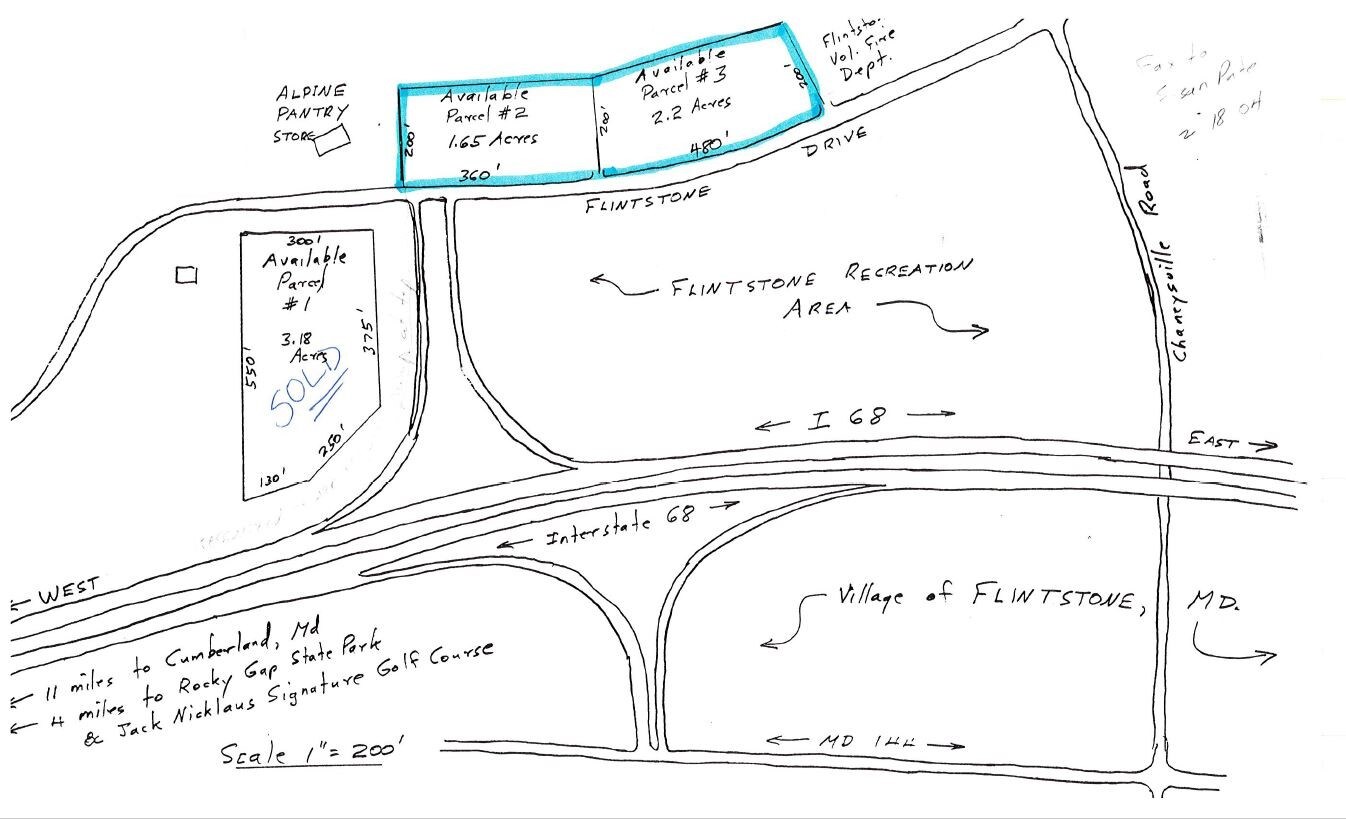 ALPINE
PANTRY
STORE
Available
Parcel #2
1.65 Acres
200'
360'
200'
Available
Parcel #3
2.2 Acres
200'
480'
Vol. Fire
Dept.
Fax to
FLINTSTONE
DRIVE
Chaneysville Road
300'
Available
Parcel
#1
3.18
Acres
SOLD
550'
375'
250'
130'
FLINTSTONE RECREATION
AREA
I 68
EAST
Interstate 68
WEST
Village of FLINTSTONE, MD.
11 miles to Cumberland, Md
4 miles to Rocky Gap State Park
& Jack Nicklaus Signature Golf Course
Scale 1" = 200'
MD 144